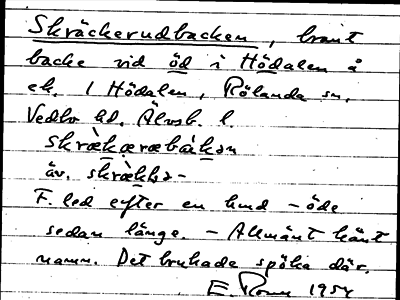 Skräckerudbacken, brant
backe vid öd i Hödalen å
ek. 1 Hödalen, Rölanda sn,
Vedbo hd. Älvsb. l.
skræ̀kæræbàkən
äv. skræ̀kkə-
F. led efter en hmd - öde
sedan länge. - Allmänt känt
namn. Det brukade spöka där.
E 1954